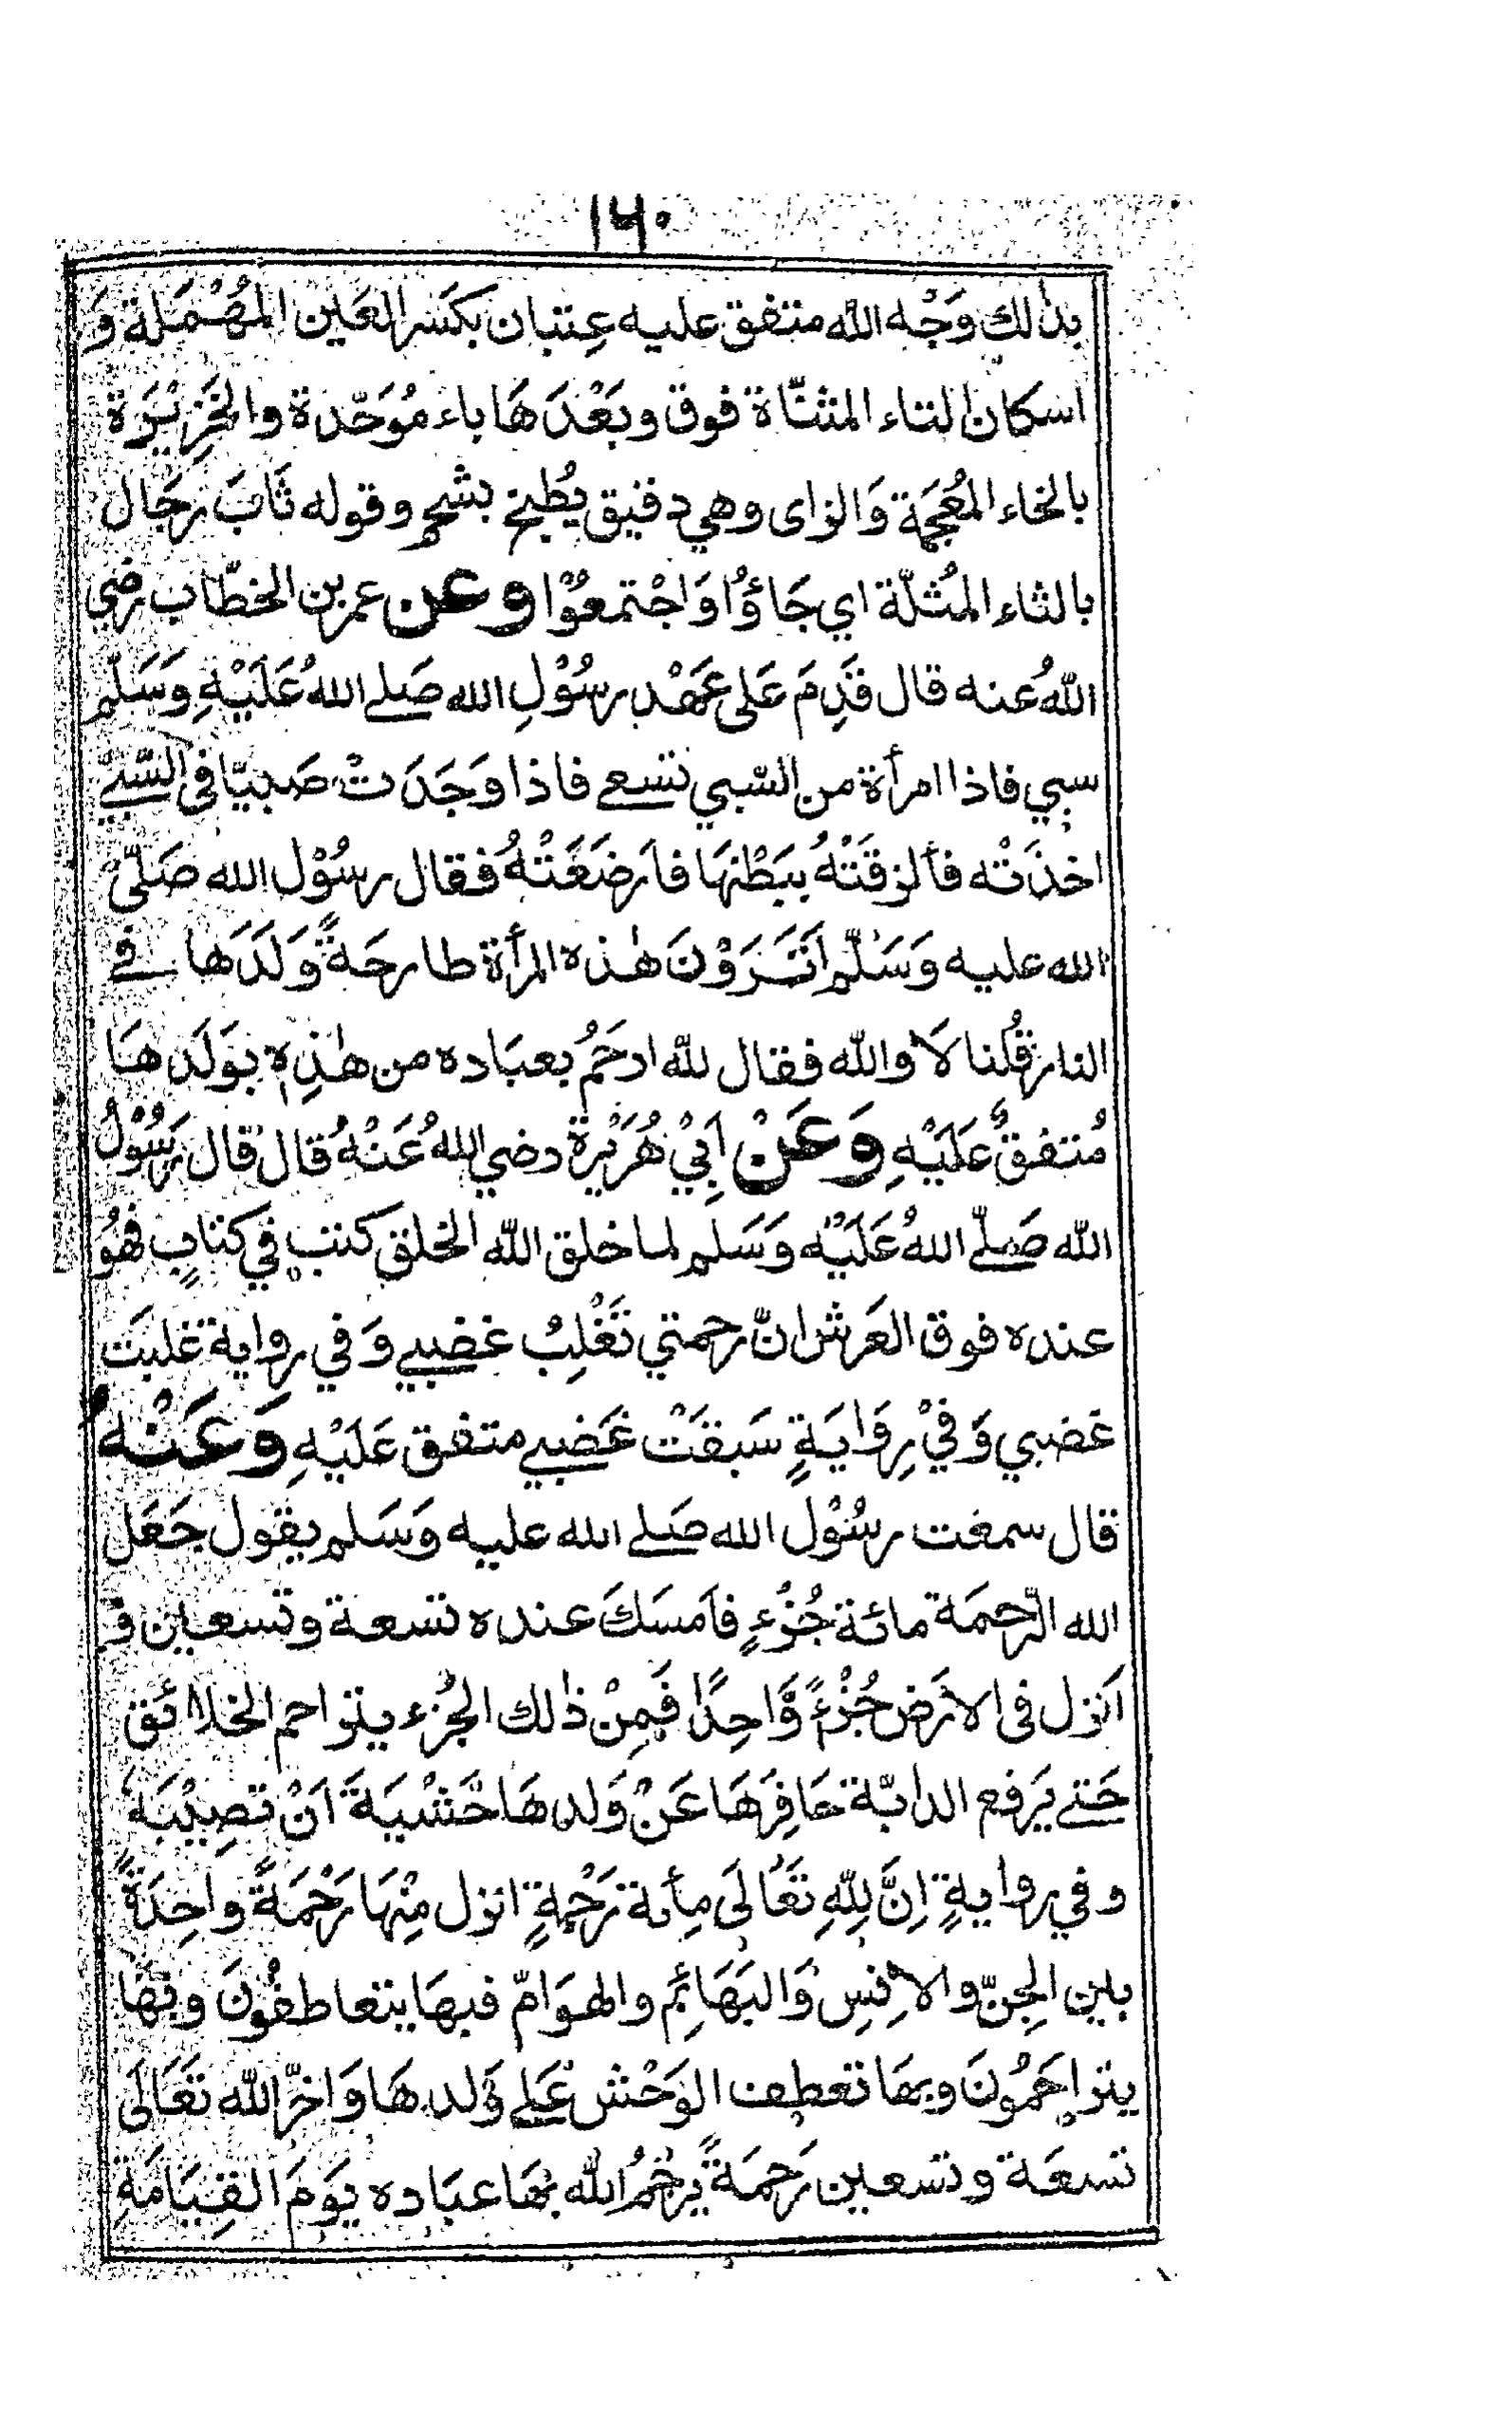 ١٦٠
بذٰلك وَجْه الله متفق عليه عِتبان بكسَر العَين المُهْمَلة وَ
اسكان التاء المثنّاة فوق وبَعْدَهَا باء مُوَحّدة والخَزِيْرَة
بالخاء المُعْجَمَة وَالزاى وهي دقيق يُطبَخ بشحم وقوله ثَابَ رجَال
بالثاء المُثلّة اي جَاؤُا وَاجْتمعُوْا وعن عمر بن الخطّاب رضي
اللهُ عنه قال قَدِمَ عَلى عَهْد رسُوْلِ الله صَلے اللهُ عَلَيْهِ وَسَلّم
سبي فاذا امرأة من السّبي تسعے فاذا وَجَدَتْ صَبيّا فى السَّبْيے
اخذَتْه فألزقَتْهُ ببَطْنهَا فاَرضَعَتْهُ فقال رسُوْل الله صَلّى
الله عليه وَسَلّم اَتَرَوْنَ هٰذه المرأة طارحَةً وَلَدَها فے
النار قُلنا لاَ والله فقال للهُ ارحَمُ بعبَاده من هٰذِهٖ بوَلَدهَا
مُتفقٌ عَلَيْهِ وَعَنْ اَبِيْ هُرَيْرة رضي اللهُ عَنْهُ قال قال رَسُوْلُ
الله صَلّے اللهُ عَلَيْه وَسَلم لما خلق الله الخلق كتب في كتابٍ فهُو
عنده فوق العَرش انّ رحمتي تَغْلِبُ غضبي وَفي رواية غلبَت
غضبي وَفيْ رِوَايَةٍ سَبقَتْ غَضبي متفق عَلَيْهِ وَعَنْهُ
قال سمعْت رسُوْل الله صَلے الله عليه وَسَلم يقول جَعَل
الله الرّحمَة مائة جُزْءٍ فاَمسَكَ عنده تسعة وتسعين وَ
اَنزل فى الاَرَض جُزْءً وَّاحِدًا فَمِنْ ذٰلك الجُزء يتراحم الخلائق
حَتے يَرفع الدابّة حَافِرَهَا عَنْ وَلدهَا خَشْيَةَ اَنْ تصِيْبَه
وفي روايةٍ اِنَّ لِلّٰهِ تَعَالَى مِأىة رَحْمةٍ انزل مِنْهَا رَحْمَةً واحِدَةً
بين الجِنّ والاْنِسِ وَالبَهَائِم والهوَامّ فبهَا يتعاطفُوْنَ وبهَا
يتراحَمُونَ وبهَا تعطِف الوَحْش عَلے وَلدهَا وَاخرّ الله تَعَالَى
تسعَة وتسعين رَحمَةً يَرحْمُ الله بهَا عبَاده يَوَمَ القِيَامَةِ